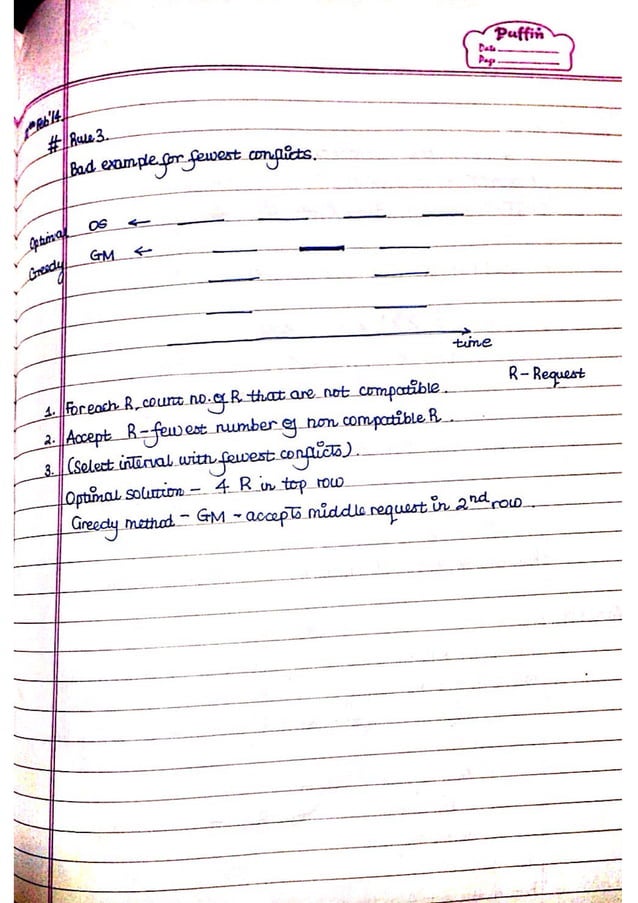 Puffin
Date
Page
Feb'14
# Rule 3.
Bad example for fewest conflicts.
Optimal OS ←
Greedy GM ←
time
R - Request
1. For each R, count no. of R that are not compatible.
2. Accept R - fewest number of non compatible R.
3. (Select interval with fewest conflicts).
Optimal solution - 4 R in top row
Greedy method - GM - accepts middle request in 2nd row.